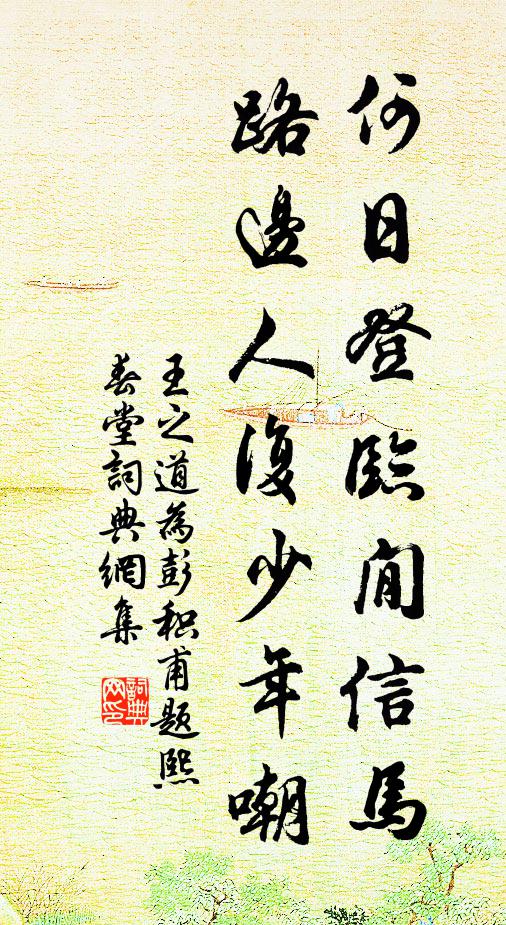 何日登臨閒信馬
路邊人復少年嘲
王之道為彭积甫题熙
春堂詞典網集
詞典网印